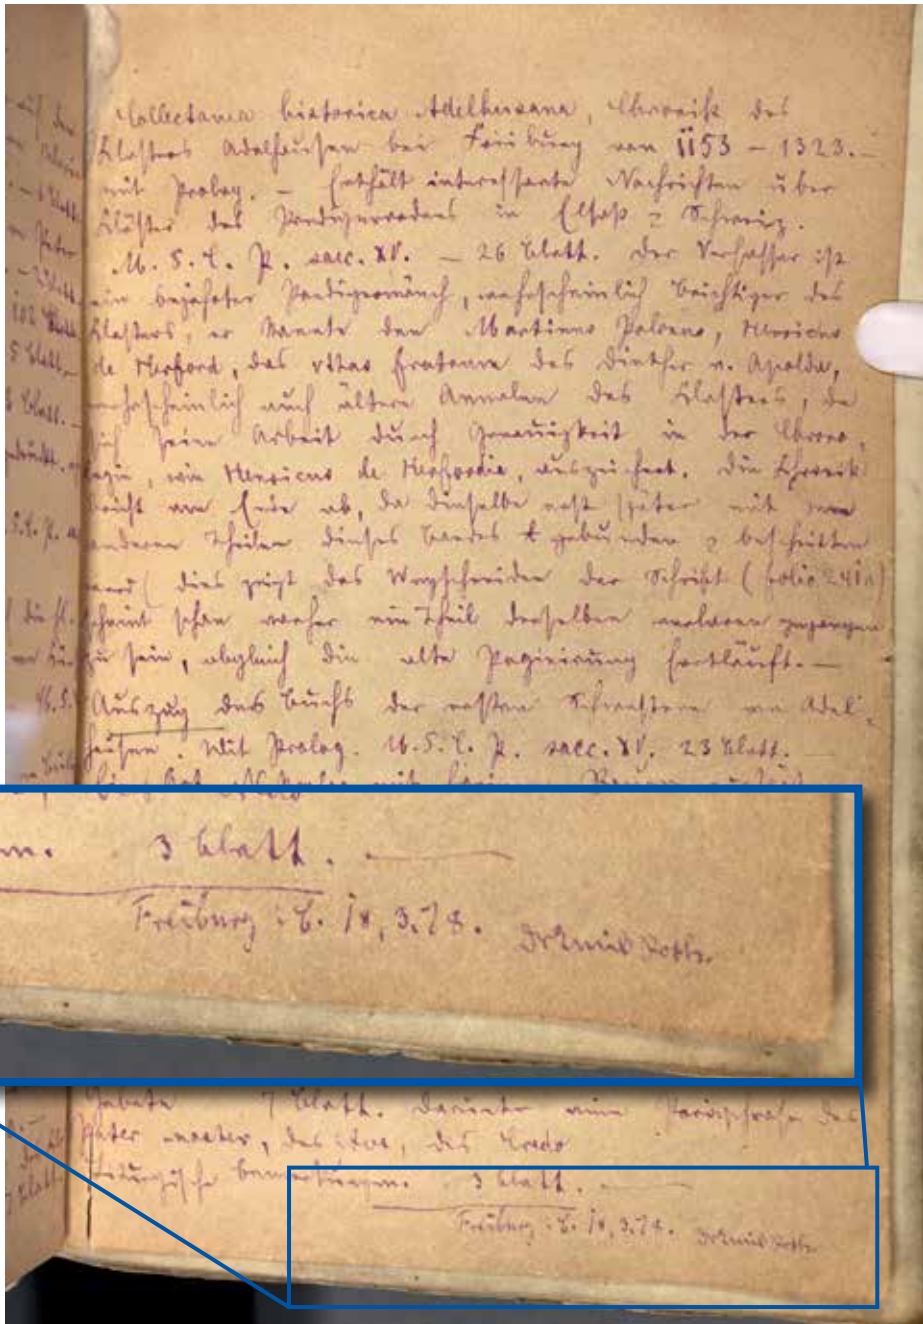 Collectanea historica Adelhusana, Chronik des
Klosters Adelhausen bei Freiburg von 1153 – 1323. –
mit Prolog. – Enthält interessante Nachrichten über
Klöster des Predigerordens in Elsaß & Schweiz.
M. S. C. P. saec. XV. – 26 Blatt. Der Verfasser ist
ein bejahrter Predigermönch, wahrscheinlich Beichtiger des
Klosters, er kannte den Martinus Polonus, Henricus
de Herford, das vitas fratrum des Diether v. Apolda,
wahrscheinlich auch ältere Annalen des Klosters, da
sich seine Arbeit durch Genauigkeit in der Chrono,
logie, wie Henricus de Herfordia, auszeichnet. Die Chronik
bricht am Ende ab, da dieselbe erst später mit
anderen Theilen dieses Bandes gebunden & beschnitten
dies zeigt das Wegschneiden der Schrift (folio 241a)
scheint schon vorher ein Theil derselben verloren gegangen
zu sein, obgleich die alte Paginirung fortläuft. –
Auszug des Buchs der ersten Schwestern von Adel-
hausen. Mit Prolog. M. S. C. P. saec. XV. 23 Blatt.
3 Blatt. –
Freiburg i. B. 18, 3. 78. Dr Emil Roth.
Gebete 7 Blatt. Darunter eine Paraphrase des
Pater noster, des Ave, des Credo
Liturgische Bemerkungen. 3 Blatt. –
Freiburg i. B. 18, 3. 78. Dr Emil Roth.